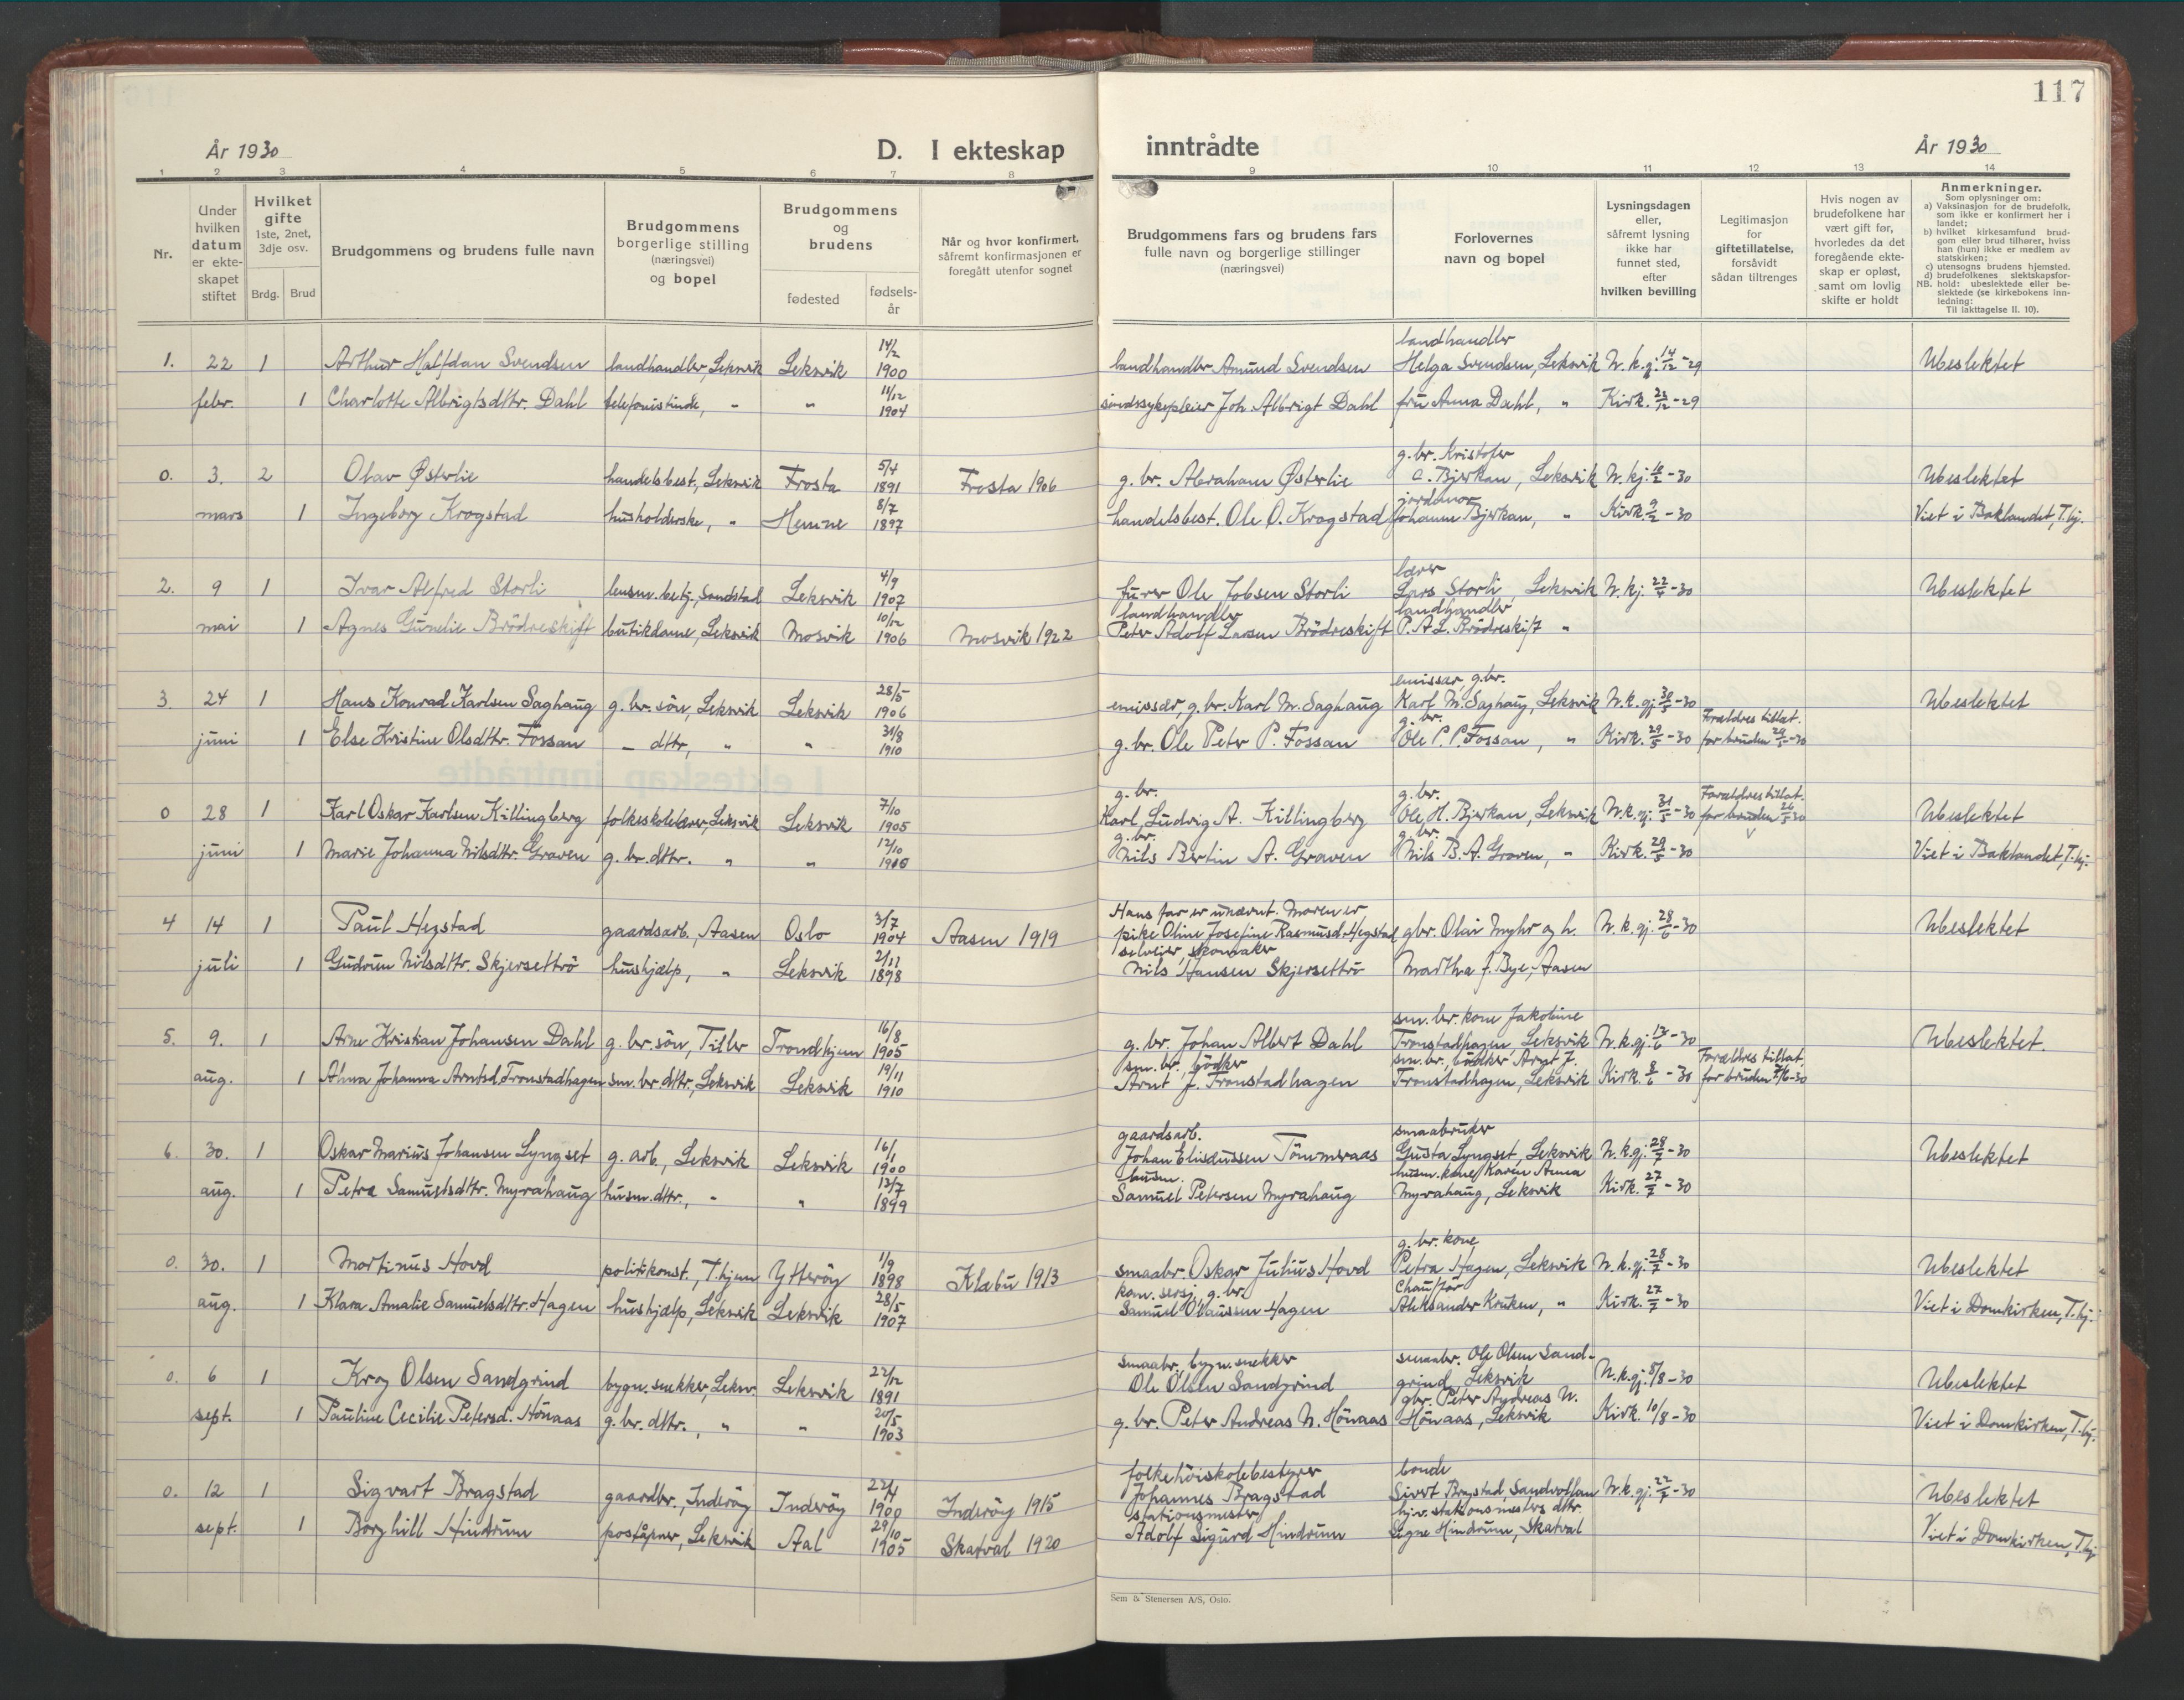 117
År 1930
D. I ekteskap
inntrådte
År 1930
1 2 3 4 5 6 7 8 9 10 11 12 13 14
Nr.
Under hvilken datum er ekteskapet stiftet
Hvilket gifte 1ste, 2net, 3dje osv.
Brdg. Brud
Brudgommens og brudens fulle navn
Brudgommens borgerlige stilling (næringsvei) og bopel
Brudgommens og brudens
fødested
fødselsår
Når og hvor konfirmert, såfremt konfirmasjonen er foregått utenfor sognet
Brudgommens fars og brudens fars fulle navn og borgerlige stillinger (næringsvei)
Forlovernes navn og bopel
Lysningsdagen eller, såfremt lysning ikke har funnet sted, efter hvilken bevilling
Legitimasjon for giftetillatelse, forsåvidt sådan tiltrenges
Hvis nogen av brudefolkene har vært gift før, hvorledes da det foregående ekteskap er opløst, samt om lovlig skifte er holdt
Anmerkninger.
Som oplysninger om:
a) Vaksinasjon for de brudefolk, som ikke er konfirmert her i landet;
b) hvilket kirkesamfund brudgom eller brud tilhører, hviss han (hun) ikke er medlem av statskirken;
c) utensogns brudens hjemsted.
d) brudefolkenes slektskapsforhold: ubeslektede eller beslektede (se kirkebokens innledning:
NB.
Til iakttagelse II. 10).
landhandler
1. 22 1 Arthur Halfdan Svendsen landhandler, Leksvik Leksvik 14/2 1900 landhandler Amund Svendsen Helga Svendsen, Leksvik N. k. gj. 14/12-29 Ubeslektet
febr. 1 Charlotte Albrigtsdttr. Dahl telefonistinde, " " 11/12 1904 sindssykepleier Joh. Albrigt Dahl fru Anna Dahl, " Kirk. 22/12-29
g. br. Kristofer
0. 3. 2 Olav Østerlie handelsbest., Leksvik Frosta 5/4 1891 Frosta 1906 g. br. Abraham Østerlie C. Bjerkan, Leksvik N. kj. 10/2-30 Ubeslektet
jordmor
mars 1 Ingeborg Krogstad husholderske, " Hemne 8/7 1897 handelsbest. Ole O. Krogstad Johanne Bjerkan, " Kirk. 9/2-30 Viet i Baklandet, T.hj.
lærer
2. 9 1 Ivar Alfred Storli lensm. betj., Sandstad Leksvik 4/9 1907 Ole Jobsen Storli Lars Storli, Leksvik N. kj. 22/4-30 Ubeslektet
landhandler landhandler
mai 1 Agnes Gunelie Brödreskift butikdame, Leksvik Mosvik 10/12 1906 Mosvik 1922 Peter Adolf Larsen Brödreskift P. A. L. Brödreskift "
emissær, g. br.
3. 24 1 Hans Konrad Karlsen Saghaug g. br. sön, Leksvik Leksvik 28/5 1906 emissær, g. br. Karl M. Saghaug Karl M. Saghaug, Leksvik N. k. gj. 30/5-30 Ubeslektet
g. br. Forældres tillat.
juni 1 Else Kristine Olsdttr. Fossan - dttr, " " 31/8 1910 g. br. Ole Peter P. Fossan Ole P. P. Fossan, " Kirk. 29/5-30 for bruden 29/5-30
g. br. g. br. Forældres tillat.
0 28 1 Karl Oskar Karlsen Killingberg folkeskolelærer, Leksvik Leksvik 7/10 1905 Karl Ludvig A. Killingberg Ole H. Bjerkan, Leksvik N. k. gj. 31/5-30 for bruden 26/5-30 Ubeslektet
g. br. g. br.
juni 1 Marie Johanna Nilsdttr. Graven g. br. dttr. " " 12/10 Nils Bertin A. Graven Nils B. A. Graven, " Kirk. 29/5-30 Viet i Baklandet, T.hj.
Hans far er unævnt. Moren er
4 14 1 Paul Hegstad gaardsarb., Aasen Oslo 3/7 1904 Aasen 1919 pike Oline Josefine Rasmusd. Hegstad gbr. Olav Myhr og h. N. k. gj. 28/6-30 Ubeslektet
selveier, skomaker
juli 1 Gudrun Nilsdttr. Skjersettrö hushjælp, " Leksvik 2/11 1898 Nils Hansen Skjersettrö Martha J. Bye, Aasen
sm. br. kone Jakobine
5. 9. 1 Arne Kristian Johansen Dahl g. br. sön, Tiller Trondhjem 16/8 1905 g. br. Johan Albert Dahl Tronstadhagen Leksvik N. k. gj. 13/6-30 Ubeslektet.
sm. br., bödker sm. br. bödker Arnt J. Forældres tillat.
aug. 1 Alma Johanna Arntsd. Tronstadhagen sm. br. dttr., Leksvik Leksvik 19/11 1910 Arnt J. Tronstadhagen Tronstadhagen, Leksvik Kirk. 8/6-30 for bruden 7/6-30
gaardsarb. smaabruker
6. 30. 1 Oskar Marius Johansen Lyngset g. arb., Leksvik Leksvik 16/1 1900 Johan Eliseussen Tömmeraas Gusta Lyngset, Leksvik N. k. gj. 28/7-30 Ubeslektet
husm. husm. kone Karen Anna
aug. 1 Petra Samuelsdttr. Myrahaug husm. dttr., " " 13/7 1899 Samuel Petersen Myrahaug Myrahaug, Leksvik Kirk. 27/7-30
g. br. kone
0. 30. 1 Martinus Hovd politikonst., T.hjem Ytteröy 1/9 1898 Klæbu 1913 smaabr. Oskar Julius Hovd Petra Hagen, Leksvik N. k. gj. 28/7-30 Ubeslektet
kom. sersj., g. br. Chauffør
aug. 1 Klara Amalie Samuelsdttr. Hagen hushjælp, Leksvik Leksvik 28/5 1907 Samuel Olaussen Hagen Aleksander Kruken, " Kirk. 27/7-30 Viet i Domkirken, T.hj.
smaabr., bygn. snekker smaabr. Ole Olsen Sand-
0. 6 1 Olsen Sandgrind bygn. snekker, Leksv. Leksvik 22/12 1891 Ole Olsen Sandgrind grind, Leksvik N. k. gj. 5/8-30 Ubeslektet
gbr. Peter Andreas N.
sept. 1 Pauline Cecilie Petersd. Hönaas g. br. dttr., " " 20/5 1903 g. br. Peter Andreas N. Hönaas Hönaas, Leksvik Kirk. 10/8-30 Viet i Domkirken, T.hj.
folkehöiskolebestyrer bonde
0. 12 1 Sigvart Bragstad gaardbr., Inderöy Inderöy 22/4 1900 Inderöy 1915 Johannes Bragstad Sivert Bragstad, Sandvollan N. k. gj. 22/7-30 Ubeslektet
stationsmester hjv. stationsmesters dttr.
sept. 1 Borghill Hindrum poståpner, Leksvik Aal 29/10 1905 Skatval 1920 Adolf Sigurd Hindrum Signe Hindrum, Skatval Viet i Domkirken, T.hj.
Sem & Stenersen A/S, Oslo.